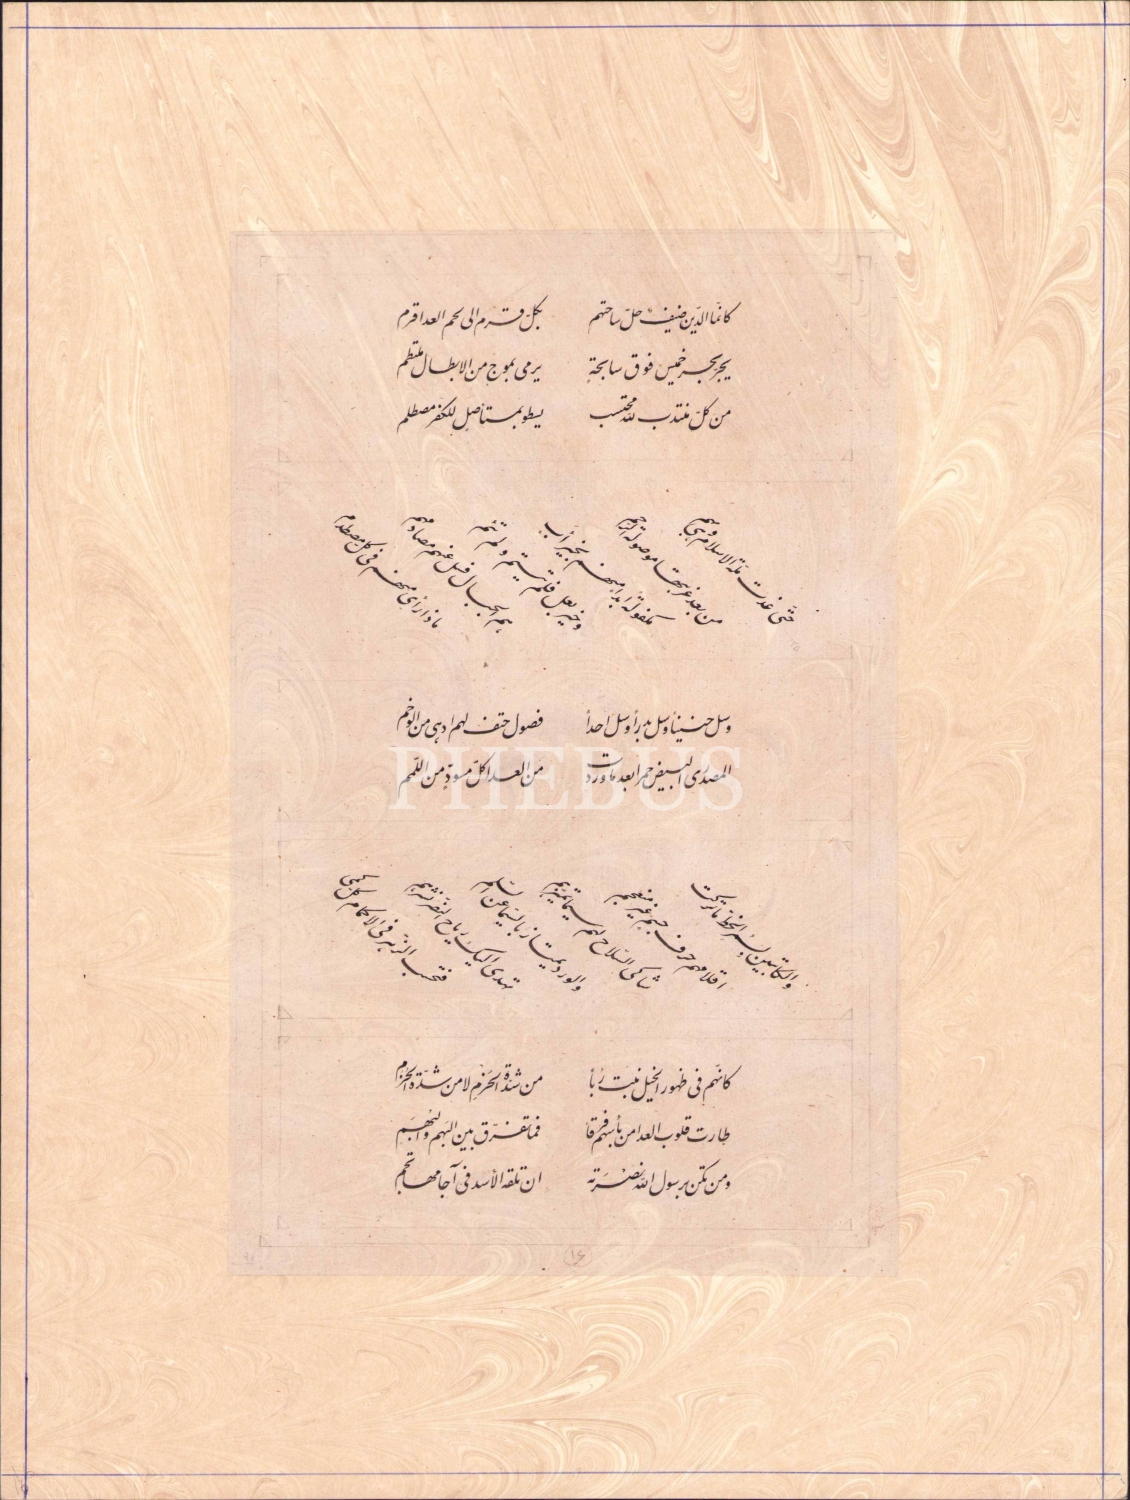 كانما الدّين ضيف حلّ ساحتهم بكلّ قرم الى لحم العدا قرم
يجرّ بحر خميس فوق سابحةٍ يرمى بموجٍ من الابطال ملتطم
من كلّ منتدب لله محتسب يسطو بمستأصل للكفر مصطلم
حتّى غدت ملّة الاسلام وهى بهم
من بعد غربتها موصولة الرحم
مكفولة ابدا منهم بخير اب
وخير بعل فلم تيتم ولم تئم
هم الجبال فسل عنهم مصادمهم
ماذا رأى منهم فى كل مصطدم
وسل حنيناً وسل بدراً وسل احداً فصول حتف لهم ادهى من الوخم
المصدرى البيض حمرا بعد ما وردت من العدا كلّ مسودّ من اللّمم
والكاتبين بسمر الخطّ ما تركت
اقلامهم حرف جسم غير منعجم
شاكى السّلاح لهم سيما تميّزهم
والورد يمتاز بالسيما عن السّلم
تهدى اليك رياح النّصر نشرهم
فتحسب الزّهر فى الاكمام كلّ كمى
كانّهم فى ظهور الخيل نبت رُباً من شدّة الحَزمِ لا من شدّة الحُزُم
طارت قلوب العدا من بأسهم فرقاً فما تفرّق بين البَهم والبُهَمِ
ومن تكن برسول الله نصْرَته ان تلقه الأسد فى آجامها تجم
١٤
PHEBUS